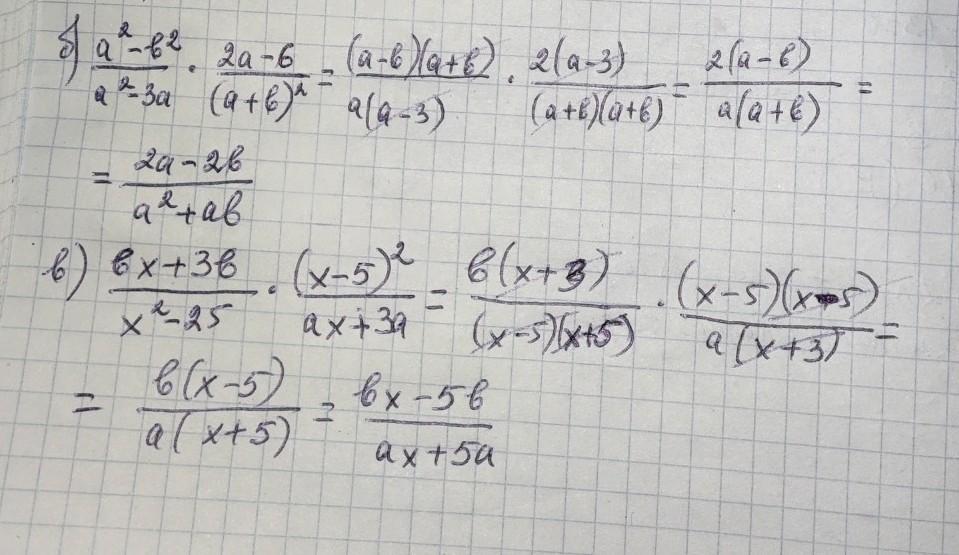 б) (a² - в²)/(a² - 3a) · (2a - 6)/(a + в)² = ((a - в)(a + в))/(a(a - 3)) · (2(a - 3))/((a + в)(a + в)) = (2(a - в))/(a(a + в)) =
= (2a - 2в)/(a² + aв)
в) (вx + 3в)/(x² - 25) · (x - 5)²/(ax + 3a) = (в(x + 3))/((x - 5)(x + 5)) · ((x - 5)(x - 5))/(a(x + 3)) =
= (в(x - 5))/(a(x + 5)) = (вx - 5в)/(ax + 5a)